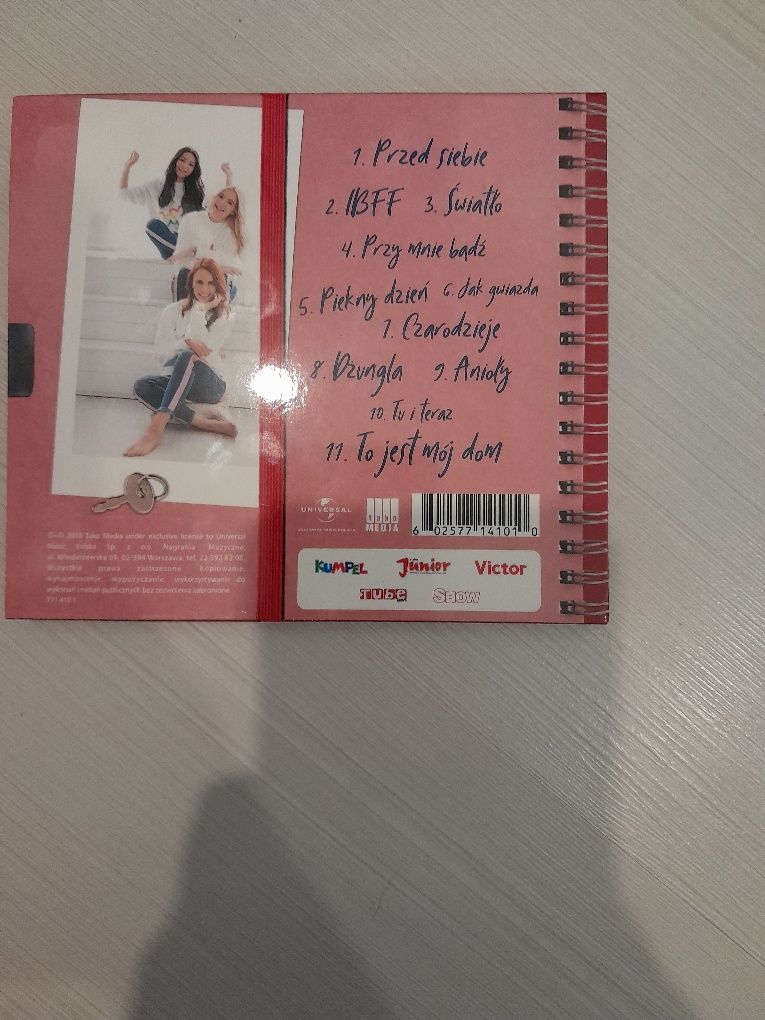 1. Przed siebie
2. IBFF 3. Światło
4. Przy mnie bądź
5. Piękny dzień 6. Jak gwiazda
7. Czarodzieje
8. Dżungla 9. Anioły
10. Tu i teraz
11. To jest mój dom
UNIVERSAL
tako
MEDIA
6 02577 14101 0
KUMPEL Júnior Victor
TUBE SHOW
2018 Tako Media under exclusive license to Universal
Music Polska Sp. z o.o. Nagrania Muzyczne,
ul. Włodarzewska 69, 02-384 Warszawa, tel. 22 592 82 00.
Wszystkie prawa zastrzeżone. Kopiowanie,
wynajmowanie, wypożyczanie, wykorzystywanie do
wykonań i nadań publicznych bez zezwolenia zabronione.
771 410 1